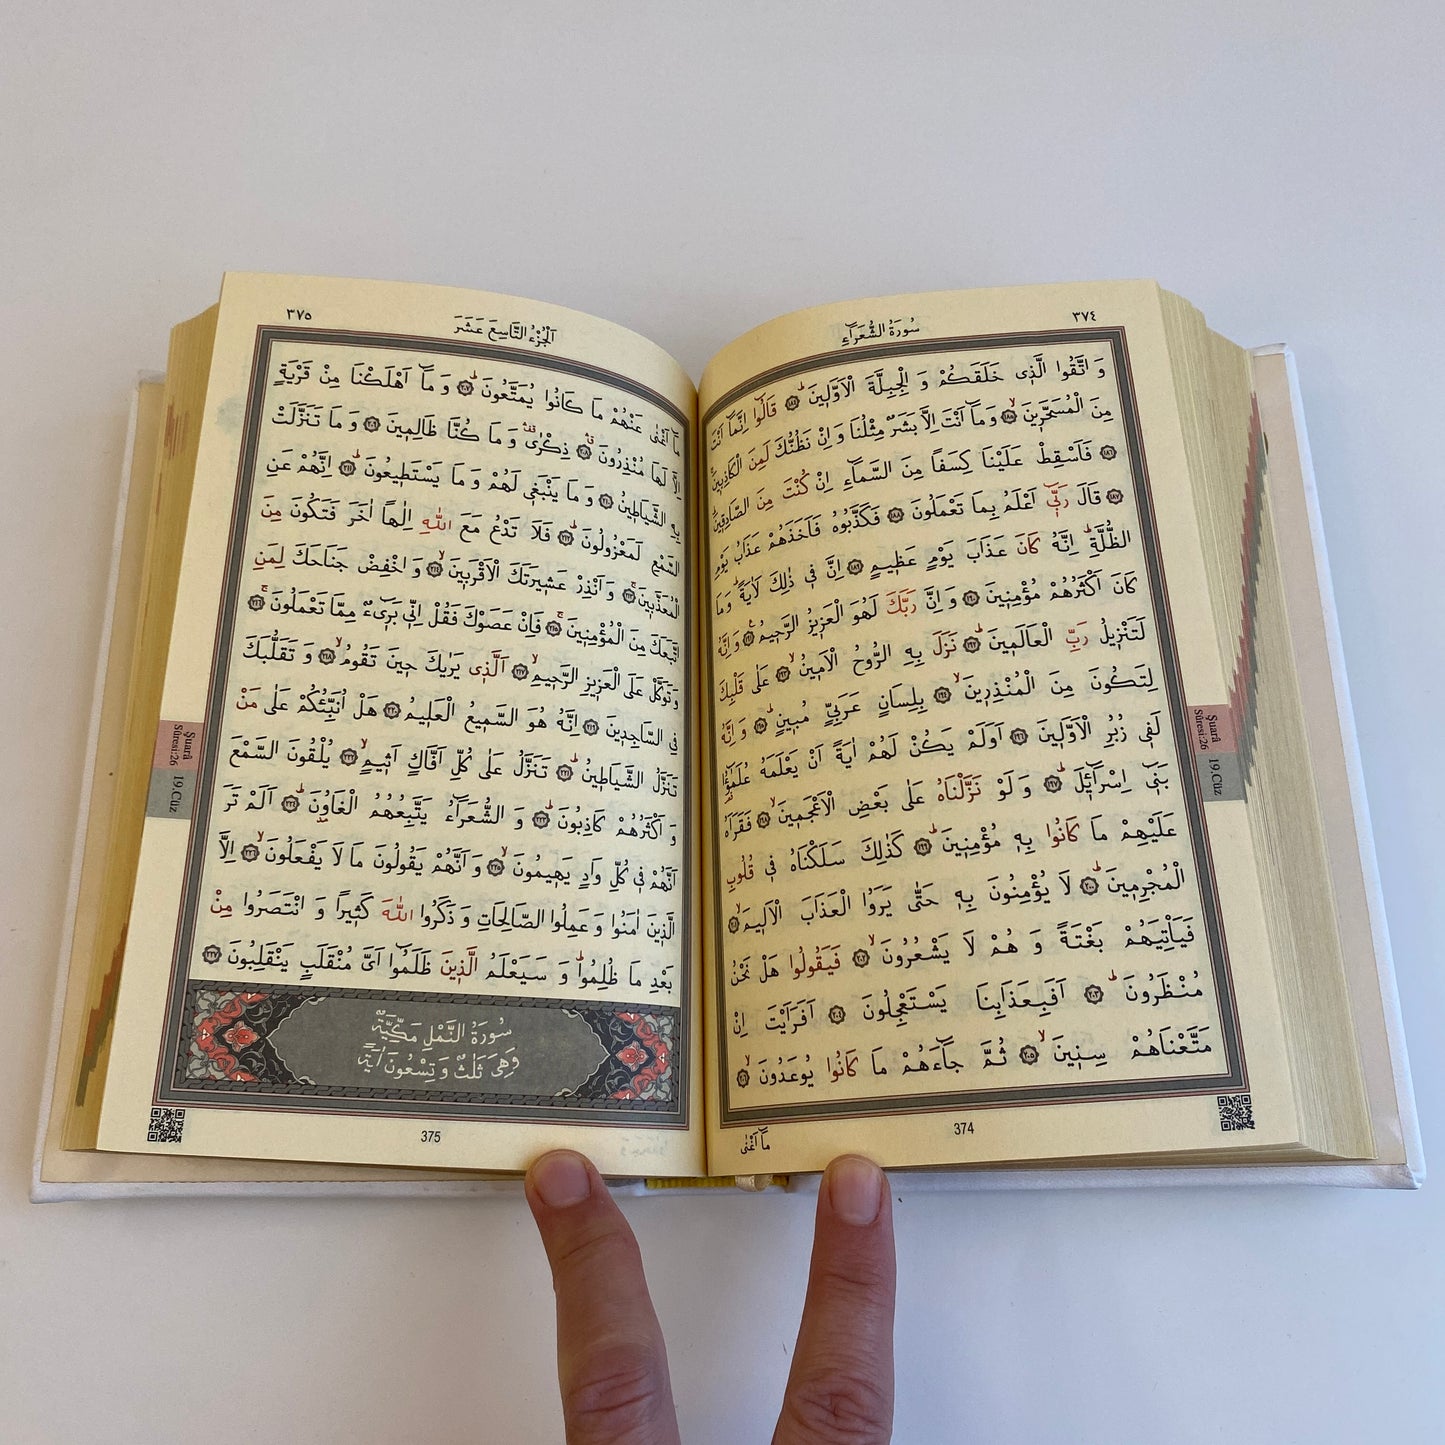 ٣٧٤
سُورَةُ الشُّعَرَٓاءِ
وَ اتَّقُوا الَّذٖى خَلَقَكُمْ وَ الْجِبِلَّةَ الْاَوَّلٖينَ ﴿١٨٤﴾ قَالُٓوا اِنَّمَٓا اَنْتَ
مِنَ الْمُسَحَّرٖينَ ﴿١٨٥﴾ وَ مَٓا اَنْتَ اِلَّا بَشَرٌ مِثْلُنَا وَ اِنْ نَظُنُّكَ لَمِنَ الْكَاذِبٖينَ
﴿١٨٦﴾ فَاَسْقِطْ عَلَيْنَا كِسَفًا مِنَ السَّمَٓاءِ اِنْ كُنْتَ مِنَ الصَّادِقٖينَ
﴿١٨٧﴾ قَالَ رَبّٖٓى اَعْلَمُ بِمَا تَعْمَلُونَ ﴿١٨٨﴾ فَكَذَّبُوهُ فَاَخَذَهُمْ عَذَابُ يَوْمِ
الظُّلَّةِ اِنَّهُ كَانَ عَذَابَ يَوْمٍ عَظٖيمٍ ﴿١٨٩﴾ اِنَّ فٖى ذٰلِكَ لَاٰيَةً وَ مَا
كَانَ اَكْثَرُهُمْ مُؤْمِنٖينَ ﴿١٩٠﴾ وَ اِنَّ رَبَّكَ لَهُوَ الْعَزٖيزُ الرَّحٖيمُ ﴿١٩١﴾ وَ اِنَّهُ
لَتَنْزٖيلُ رَبِّ الْعَالَمٖينَ ﴿١٩٢﴾ نَزَلَ بِهِ الرُّوحُ الْاَمٖينُ ﴿١٩٣﴾ عَلٰى قَلْبِكَ
لِتَكُونَ مِنَ الْمُنْذِرٖينَ ﴿١٩٤﴾ بِلِسَانٍ عَرَبِىٍّ مُبٖينٍ ﴿١٩٥﴾ وَ اِنَّهُ
لَفٖى زُبُرِ الْاَوَّلٖينَ ﴿١٩٦﴾ اَوَلَمْ يَكُنْ لَهُمْ اٰيَةً اَنْ يَعْلَمَهُ عُلَمٰٓؤُا
بَنٖٓى اِسْرَٓائٖلَ ﴿١٩٧﴾ وَ لَوْ نَزَّلْنَاهُ عَلٰى بَعْضِ الْاَعْجَمٖينَ ﴿١٩٨﴾ فَقَرَاَهُ
عَلَيْهِمْ مَا كَانُوا بِهٖ مُؤْمِنٖينَ ﴿١٩٩﴾ كَذٰلِكَ سَلَكْنَاهُ فٖى قُلُوبِ
الْمُجْرِمٖينَ ﴿٢٠٠﴾ لَا يُؤْمِنُونَ بِهٖ حَتّٰى يَرَوُا الْعَذَابَ الْاَلٖيمَ ﴿٢٠١﴾
فَيَاْتِيَهُمْ بَغْتَةً وَ هُمْ لَا يَشْعُرُونَ ﴿٢٠٢﴾ فَيَقُولُوا هَلْ نَحْنُ
مُنْظَرُونَ ﴿٢٠٣﴾ اَفَبِعَذَابِنَا يَسْتَعْجِلُونَ ﴿٢٠٤﴾ اَفَرَاَيْتَ اِنْ
مَتَّعْنَاهُمْ سِنٖينَ ﴿٢٠٥﴾ ثُمَّ جَٓاءَهُمْ مَا كَانُوا يُوعَدُونَ ﴿٢٠٦﴾
Şuarâ
Sûresi:26
19.Cüz
374
مَٓا اَغْنٰى
اَلْجُزْءُ التَّاسِعَ عَشَرَ
٣٧٥
مَٓا اَغْنٰى عَنْهُمْ مَا كَانُوا يُمَتَّعُونَ ﴿٢٠٧﴾ وَ مَٓا اَهْلَكْنَا مِنْ قَرْيَةٍ
اِلَّا لَهَا مُنْذِرُونَ ﴿٢٠٨﴾ ذِكْرٰى وَ مَا كُنَّا ظَالِمٖينَ ﴿٢٠٩﴾ وَ مَا تَنَزَّلَتْ
بِهِ الشَّيَاطٖينُ ﴿٢١٠﴾ وَ مَا يَنْبَغٖى لَهُمْ وَ مَا يَسْتَطٖيعُونَ ﴿٢١١﴾ اِنَّهُمْ عَنِ
السَّمْعِ لَمَعْزُولُونَ ﴿٢١٢﴾ فَلَا تَدْعُ مَعَ اللّٰهِ اِلٰهًا اٰخَرَ فَتَكُونَ مِنَ
الْمُعَذَّبٖينَ ﴿٢١٣﴾ وَ اَنْذِرْ عَشٖيرَتَكَ الْاَقْرَبٖينَ ﴿٢١٤﴾ وَ اخْفِضْ جَنَاحَكَ لِمَنِ
اتَّبَعَكَ مِنَ الْمُؤْمِنٖينَ ﴿٢١٥﴾ فَاِنْ عَصَوْكَ فَقُلْ اِنّٖى بَرٖٓىءٌ مِمَّا تَعْمَلُونَ ﴿٢١٦﴾
وَ تَوَكَّلْ عَلَى الْعَزٖيزِ الرَّحٖيمِ ﴿٢١٧﴾ اَلَّذٖى يَرٰيكَ حٖينَ تَقُومُ ﴿٢١٨﴾ وَ تَقَلُّبَكَ
فِى السَّاجِدٖينَ ﴿٢١٩﴾ اِنَّهُ هُوَ السَّمٖيعُ الْعَلٖيمُ ﴿٢٢٠﴾ هَلْ اُنَبِّئُكُمْ عَلٰى مَنْ
تَنَزَّلُ الشَّيَاطٖينُ ﴿٢٢١﴾ تَنَزَّلُ عَلٰى كُلِّ اَفَّاكٍ اَثٖيمٍ ﴿٢٢٢﴾ يُلْقُونَ السَّمْعَ
وَ اَكْثَرُهُمْ كَاذِبُونَ ﴿٢٢٣﴾ وَ الشُّعَرَٓاءُ يَتَّبِعُهُمُ الْغَاوُنَ ﴿٢٢٤﴾ اَلَمْ تَرَ
اَنَّهُمْ فٖى كُلِّ وَادٍ يَهٖيمُونَ ﴿٢٢٥﴾ وَ اَنَّهُمْ يَقُولُونَ مَا لَا يَفْعَلُونَ ﴿٢٢٦﴾ اِلَّا
الَّذٖينَ اٰمَنُوا وَ عَمِلُوا الصَّالِحَاتِ وَ ذَكَرُوا اللّٰهَ كَثٖيرًا وَ انْتَصَرُوا مِنْ
بَعْدِ مَا ظُلِمُوا وَ سَيَعْلَمُ الَّذٖينَ ظَلَمُٓوا اَىَّ مُنْقَلَبٍ يَنْقَلِبُونَ ﴿٢٢٧﴾
سُورَةُ النَّمْلِ مَكِّيَّةٌ
وَهِىَ ثَلٰثٌ وَ تِسْعُونَ اٰيَةً
Şuarâ
Sûresi:26
19.Cüz
375